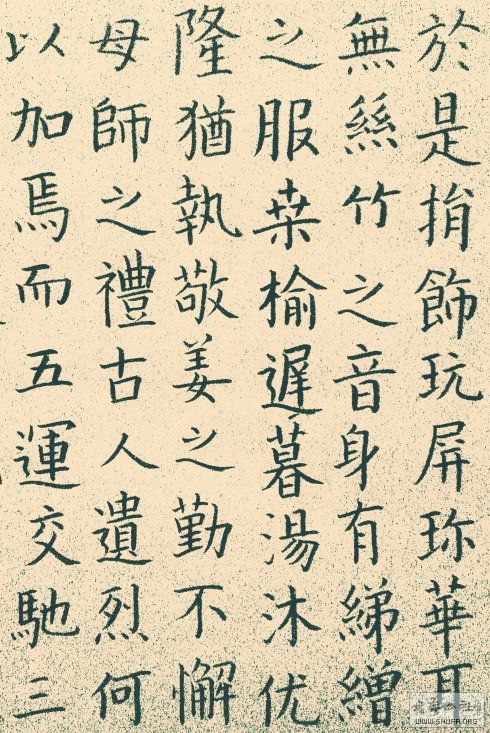 於是捐飾玩屏珎華耳
無絲竹之音身有綈繒
之服桒榆遲暮湯沐优
隆猶執敬姜之勤不懈
母師之禮古人遺烈何
以加焉而五運交馳三
WWW.SHUFA.ORG